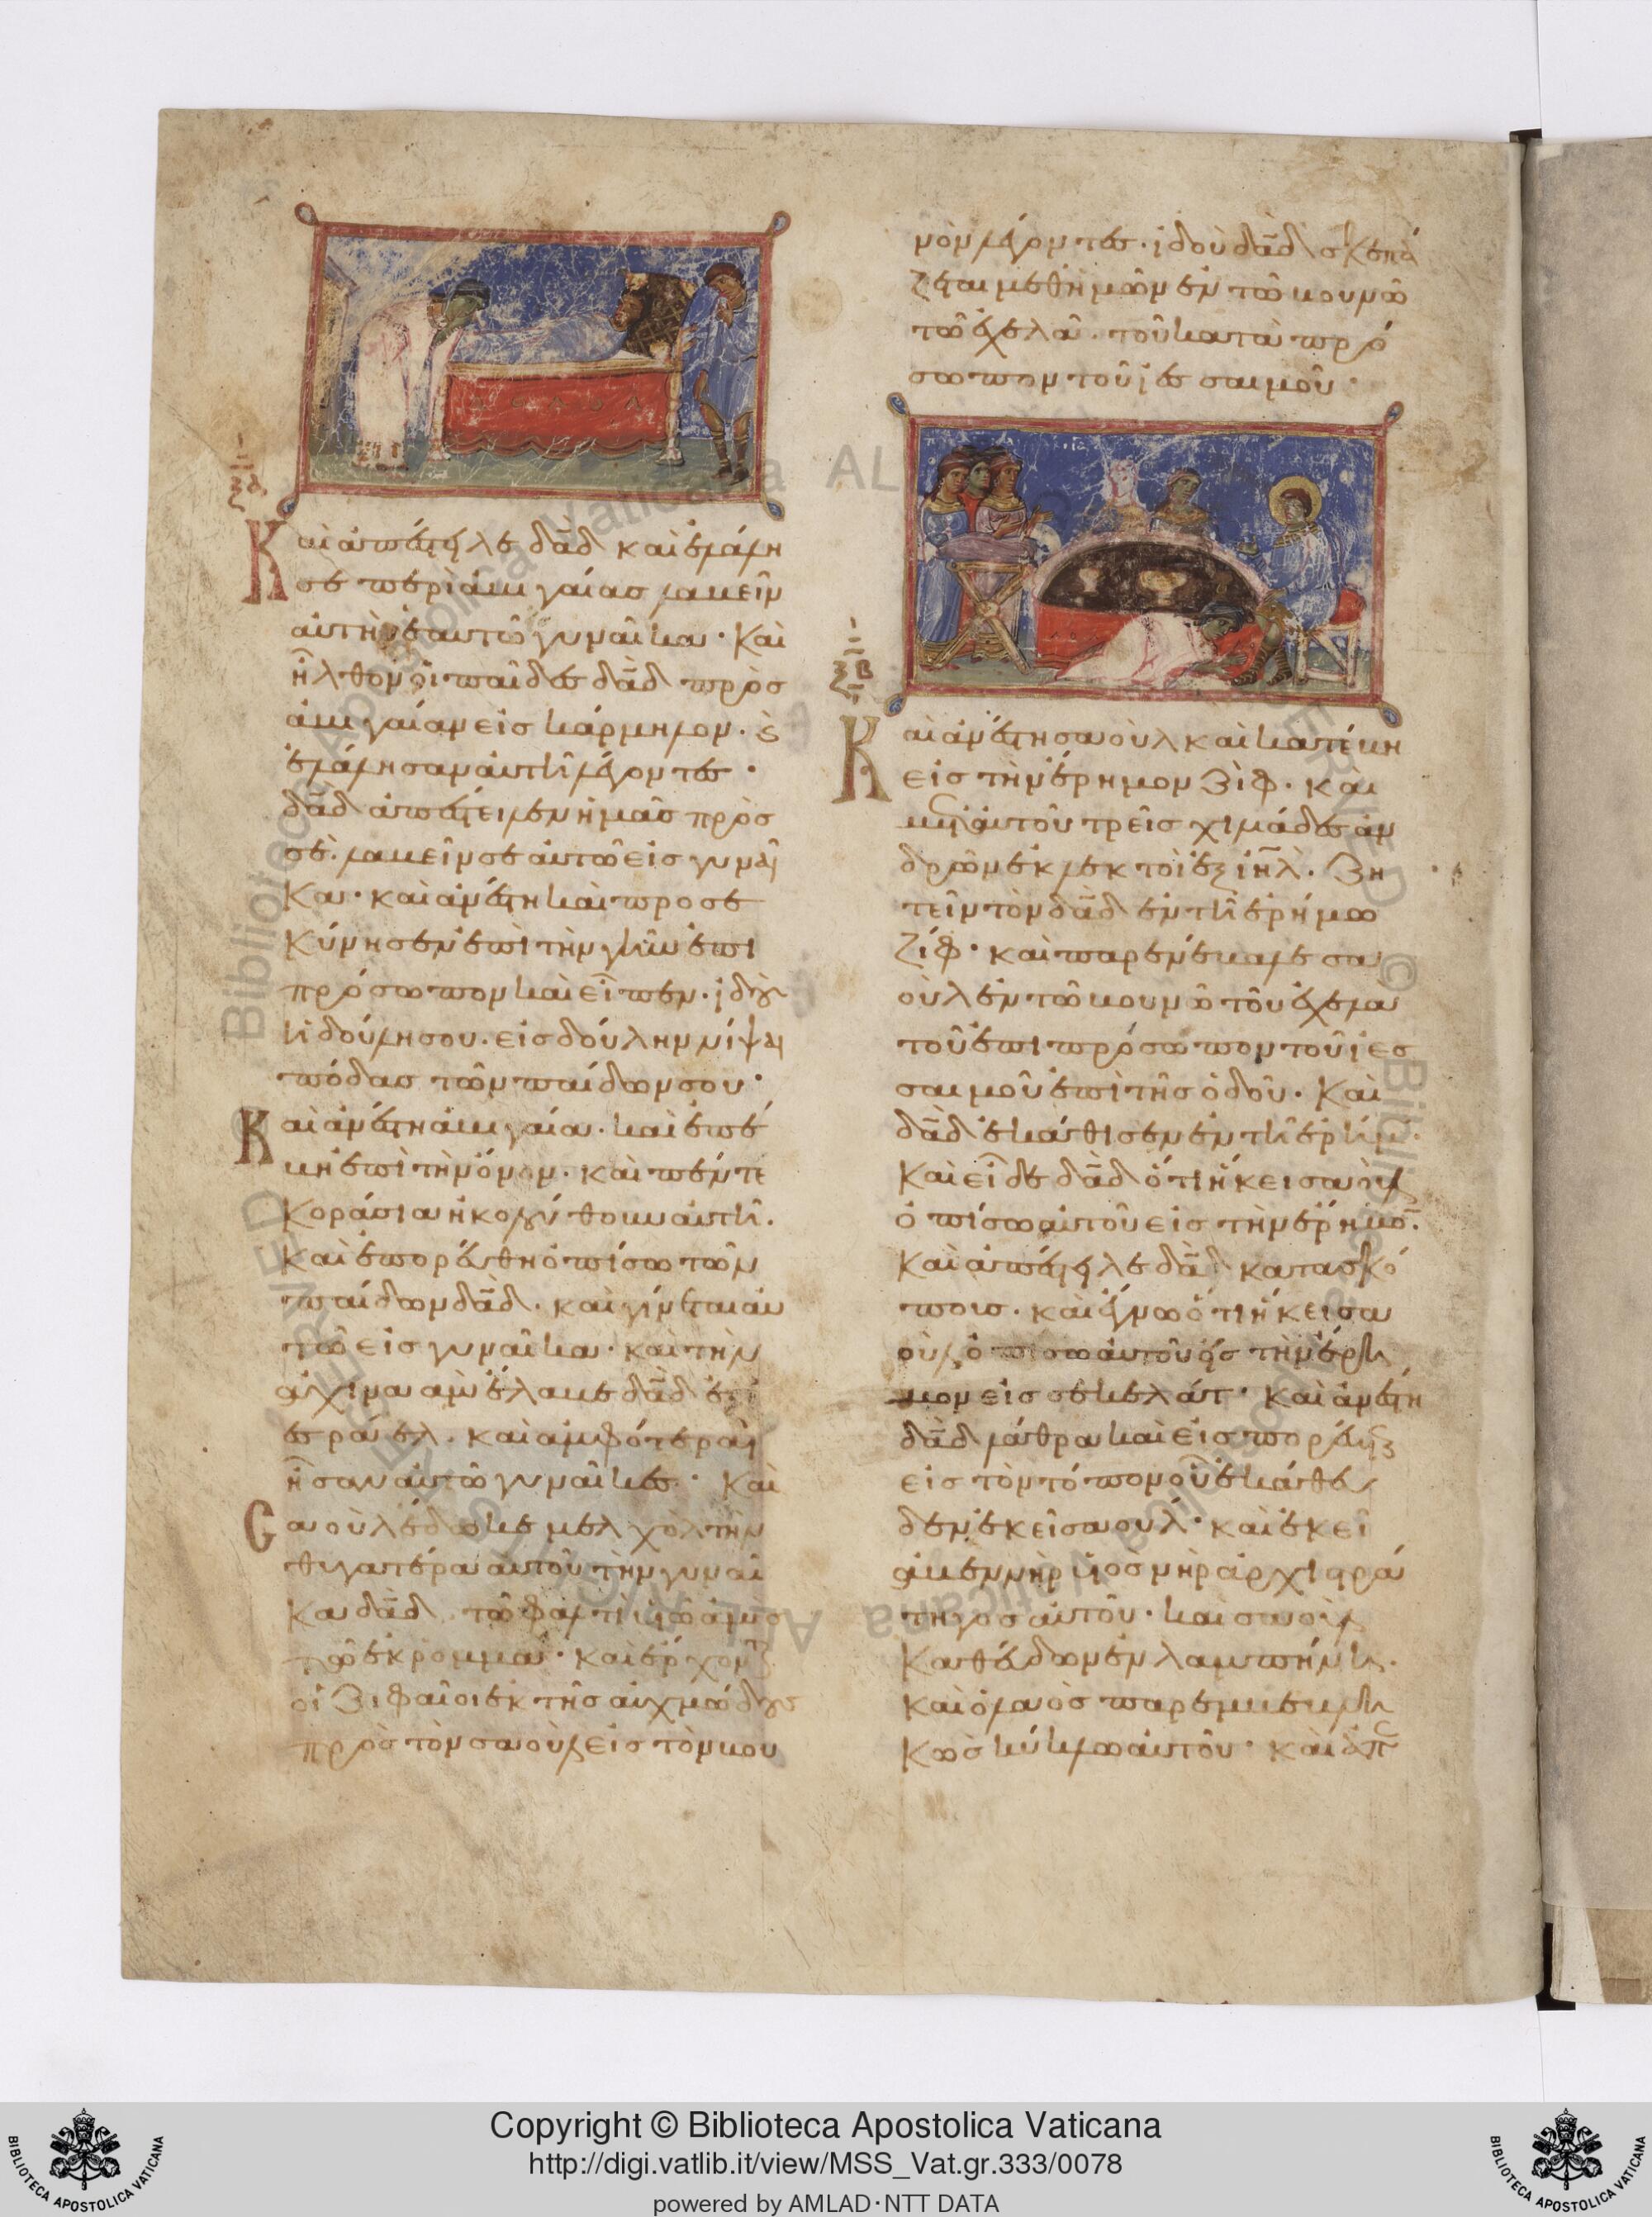 ξα
Καὶ ἀπέστειλε δᾱδ καὶ ἐλάλη
σε περὶ ἀβιγαίας λαβεῖν
αὐτὴν ἑαυτῶ γυναῖκα· Καὶ
ἦλθον οἱ παῖδες δᾱδ πρὸς
ἀβιγαίαν εἰς κάρμηλον. ϗ
ἐλάλησαν αὐτῆ λέγοντες·
δᾱδ ἀπέστειλεν ἡμᾶς πρὸς
σὲ. λαβεῖν σε αὐτῶ εἰς γυναῖ
κα· καὶ ἀνέστη καὶ προσε
κύνησεν ἐπὶ τὴν γῆν ἐπι
πρόσωπον καὶ εἶπεν· ἰδοὺ
ἡ δούλη σου. εἰς δούλην νίψαι
πόδας τῶν παίδων σου·
Καὶ ἀνέστη ἀβιγαία. καὶ ἐπέ
βη ἐπὶ τὴν ὄνον. καὶ πέντε
κοράσια ἠκολούθουν αὐτῆ.
καὶ ἐπορεύθη ὀπίσω τῶν
παίδων δᾱδ. καὶ γίνεται αυ
τῶ εἰς γυναῖκα· καὶ τὴν
ἀχινααμ ἔλαβε δᾱδ ἐξ ἰ
εσραέλ. καὶ ἀμφότεραι
ἦσαν αὐτῶ γυναῖκες· Καὶ
σαοὺλ ἔδωκε μελχὸλ τὴν
θυγατέρα αὐτοῦ τὴν γυναῖ
κα δᾱδ τῶ φαλτὶ υἱῶ ἀμὶς
τῶ ἐκ ρομμα· καὶ ἔρχονται
οἱ ζιφαῖοι ἐκ τῆς αὐχμώδους
πρὸς τὸν σαοὺλ εἰς τὸν βου
νὸν λέγοντες· ἰδοὺ δᾱδ σκεπά
ζεται μεθ ἡμῶν ἐν τῶ βουνῶ
τῶ ἐχελᾶ. τοῦ κατὰ πρό
σωπον τοῦ ἰεσσαιμοῦ·
ξβ
Καὶ ἀνέστη σαοὺλ καὶ κατέβη
εἰς τὴν ἔρημον ζὶφ. καὶ
μετ αὐτοῦ τρεῖς χιλιάδες ἀν
δρῶν ἐκλεκτοὶ ἐξ ιη̄λ. ζη
τεῖν τὸν δᾱδ ἐν τῆ ἐρήμω
ζίφ· καὶ παρενέβαλε σα
οὺλ ἐν τῶ βουνῶ τοῦ ἐχελα
τοῦ ἐπι πρόσωπον τοῦ ἰεσ
σαιμοῦ ἐπὶ τῆς ὁδοῦ· Καὶ
δᾱδ ἐκάθισεν ἐν τῆ ἐρήμω.
καὶ εἶδε δᾱδ ὅτι ἥκει σαοὺλ
ὀπίσω αὐτοῦ εἰς τὴν ἔρημον.
καὶ ἀπέστειλε δᾱδ κατασκό
πους. καὶ ἔγνω ὅτι ἥκει σα
οὺλ ὀπίσω αὐτοῦ εἰς τὴν ἔρη
μον εἰς σεκελάτ· καὶ ἀνέστη
δᾱδ λάθρα καὶ εἰσπορεύεται
εἰς τὸν τόπον οὗ ἐκάθευ
δεν ἐκεῖ σαουλ· καὶ ἐκεῖ
ἀβεννὴρ υἱὸς νὴρ ἀρχιστρά
τηγος αὐτοῦ· καὶ σαοὺλ
καθεύδων ἐν λαμπήνη.
καὶ ὁ λαὸς παρεμβεβλη
κὼς κύκλω αὐτοῦ· καὶ ἀπε
Copyright © Biblioteca Apostolica Vaticana
http://digi.vatlib.it/view/MSS_Vat.gr.333/0078
powered by AMLAD·NTT DATA
BIBLIOTECA APOSTOLICA VATICANA
BIBLIOTECA APOSTOLICA VATICANA